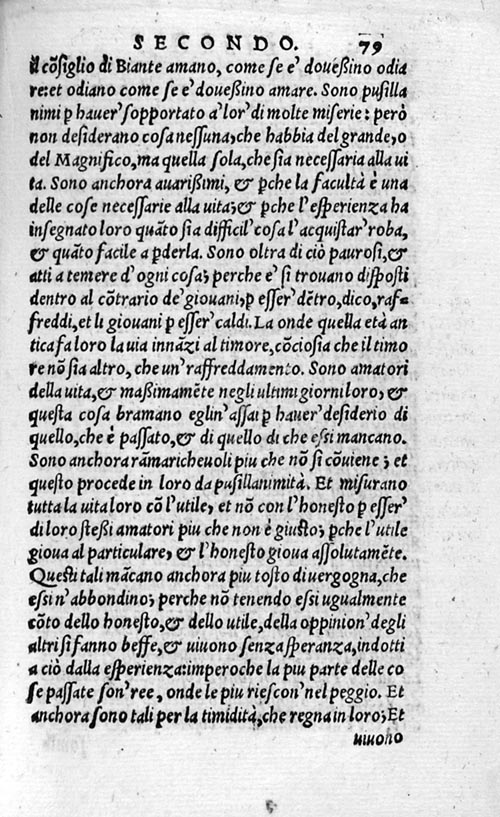 SECONDO. 79
il cõſiglio di Biante amano, come ſe e' doueßino odia
re: et odiano come ſe e' doueßino amare. Sono puſilla
nimi p hauer' ſopportato a'lor' di molte miſerie: però
non deſiderano coſa neſſuna, che habbia del grande, o
del Magnifico, ma quella ſola, che ſia neceſſaria alla ui
ta. Sono anchora auarißimi, & pche la facultà è una
delle coſe neceſſarie alla uita; & pche l'eſperienza ha
inſegnato loro quãto ſia difficil' coſa l'acquiſtar' roba,
& quãto facile a pderla. Sono oltra di ciò pauroſi, &
atti a temere d'ogni coſa; perche e' ſi trouano diſpoſti
dentro al cõtrario de' giouani, p eſſer' dẽtro, dico, raf-
freddi, et li giouani p eſſer' caldi. La onde quella età an
tica fa loro la uia innãzi al timore, cõcioſia che il timo
re nõ ſia altro, che un' raffreddamento. Sono amatori
della uita, & maßimamẽte negli ultimi giorni loro, &
queſta coſa bramano eglin' aſſai p hauer' deſiderio di
quello, che è paſſato, & di quello di che eſsi mancano.
Sono anchora rãmaricheuoli piu che nõ ſi cõuiene; et
queſto procede in loro da puſillanimità. Et miſurano
tutta la uita loro cõ l'utile, et nõ con l'honeſto p eſſer'
di loro ſteßi amatori piu che non è giuſto; pche l'utile
gioua al particulare, & l'honeſto gioua aſſolutamẽte.
Queſti tali mãcano anchora piu toſto di uergogna, che
eſsi n'abbondino; perche nõ tenendo eſsi ugualmente
cõto dello honeſto, & dello utile, della oppinion' degli
altri ſi fanno beffe, & uiuono ſenza ſperanza, indotti
a ciò dalla eſperienza: imperoche la piu parte delle co
ſe paſſate ſon' ree, onde le piu rieſcon' nel peggio. Et
anchora ſono tali per la timidità, che regna in loro; Et
uiuono